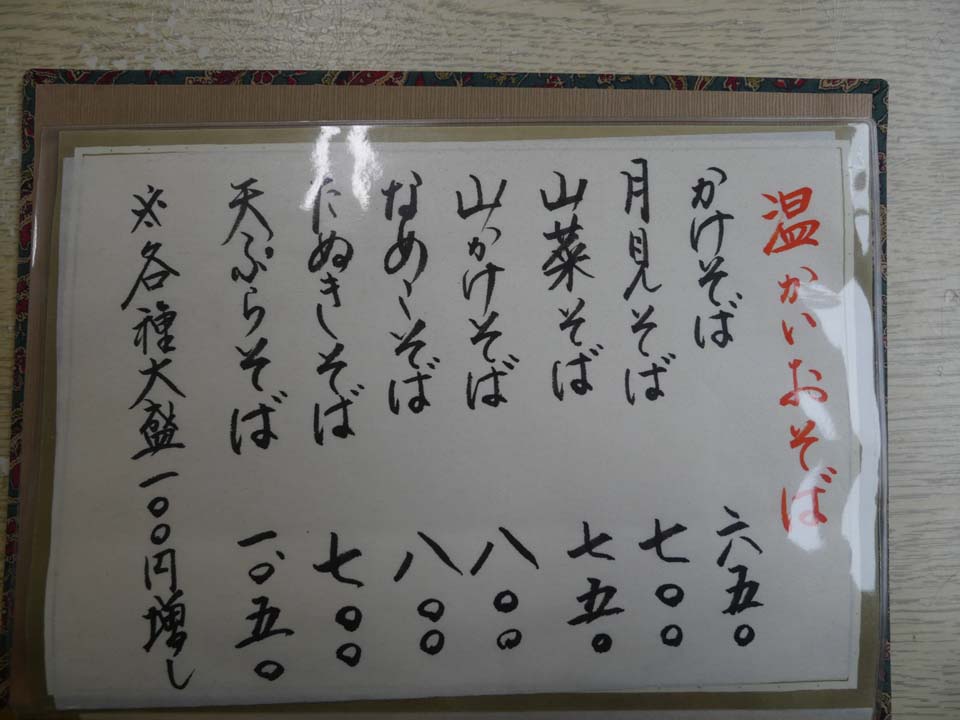 温かいおそば
かけそば 六五〇
月見そば 七〇〇
山菜そば 七五〇
山かけそば 八〇〇
なめこそば 八〇〇
たぬきそば 七〇〇
天ぷらそば 一〇五〇
※各種大盛一〇〇円増し